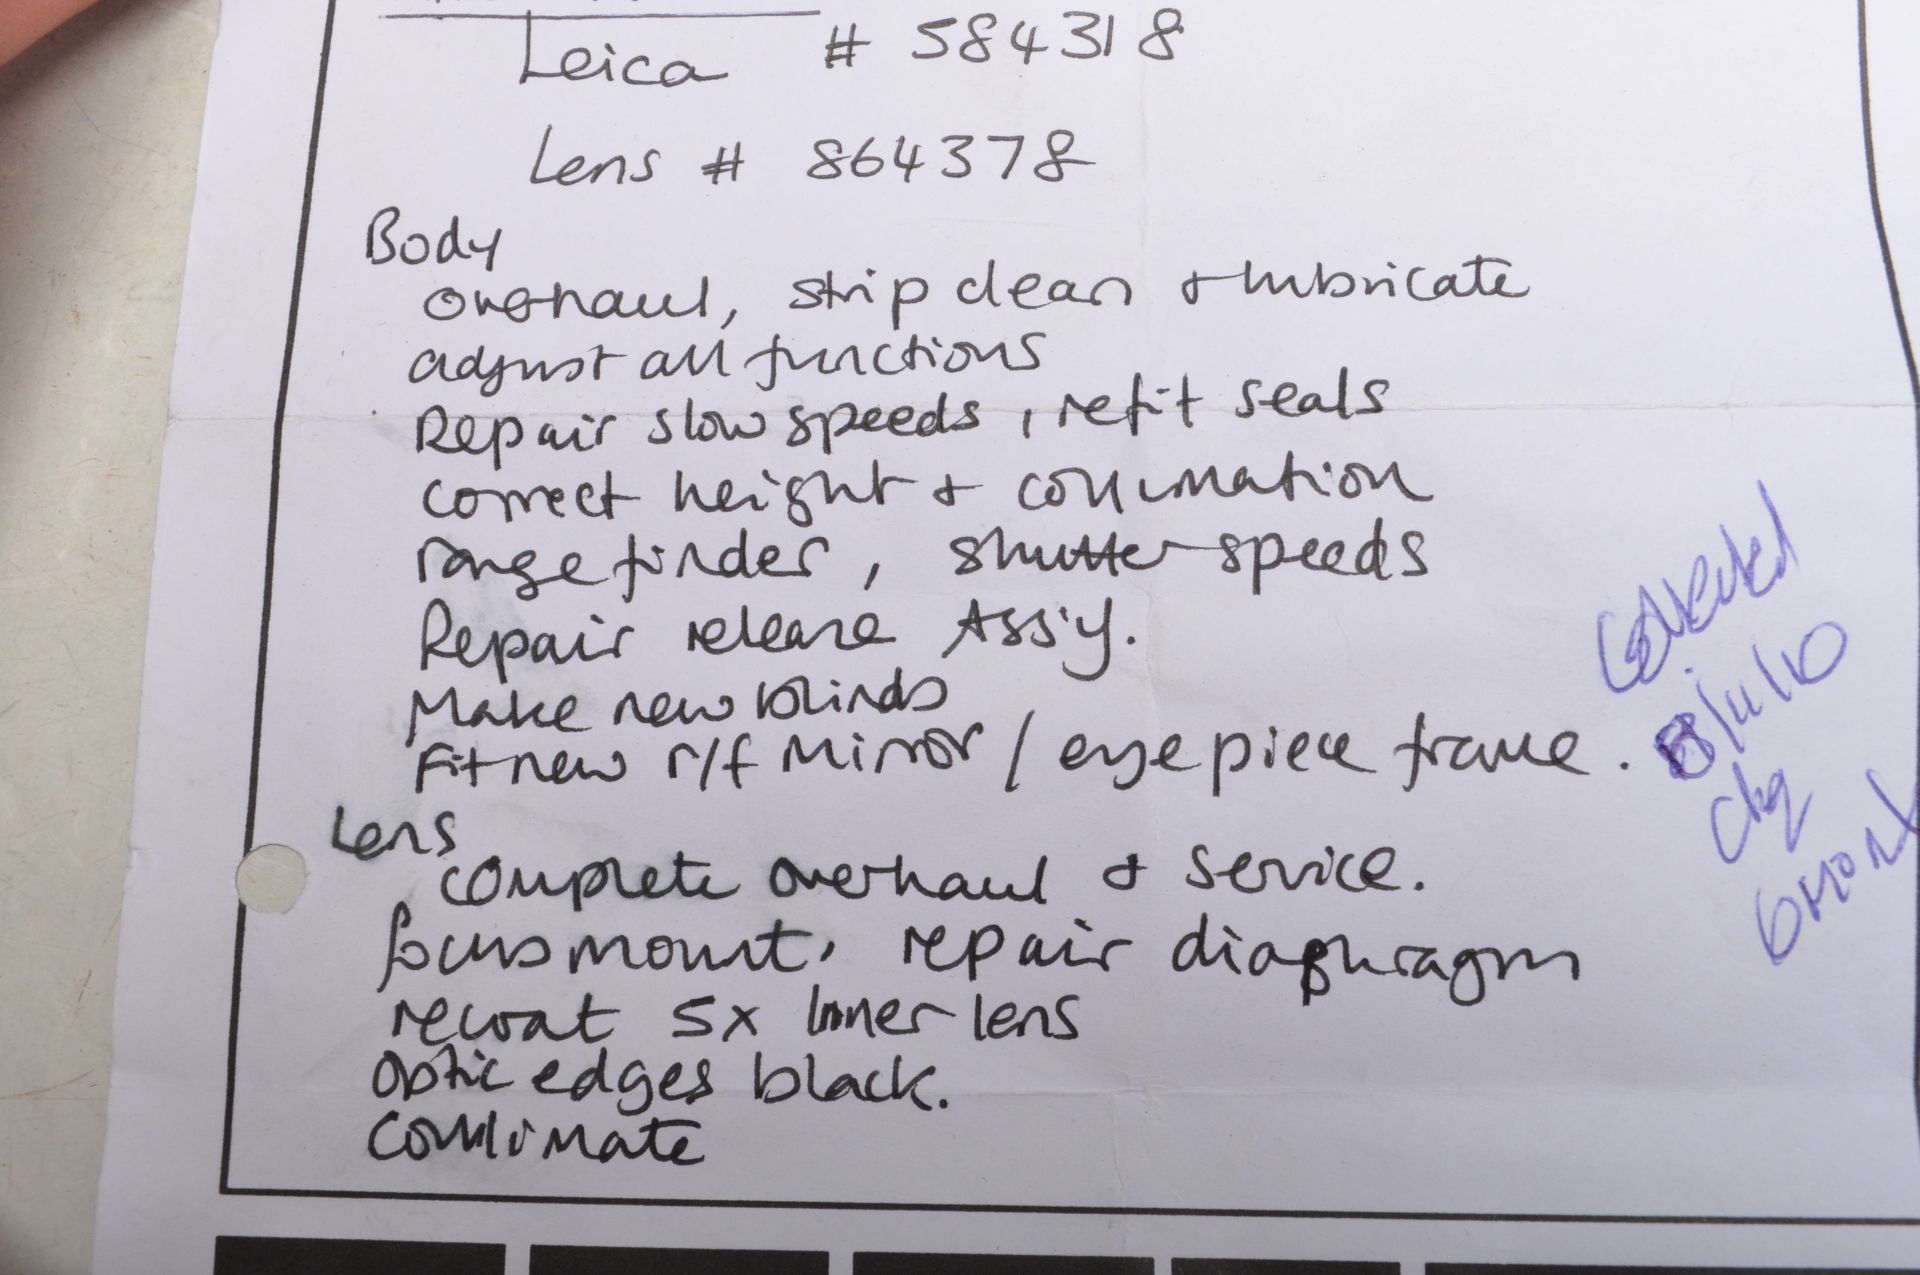 Leica # 584318
Lens # 864378
Body
overhaul, strip clean & lubricate
adjust all functions
Repair slow speeds, refit seals
correct height & collimation
rangefinder, shutter speeds
Repair release Ass'y.
Make new blinds
Fit new r/f mirror / eye piece frame.
Collected
8/11/10
Chq
Lens
complete overhaul & service.
focus mount, repair diaphragm
recoat 5x Inner lens
Optic edges black.
Collimate